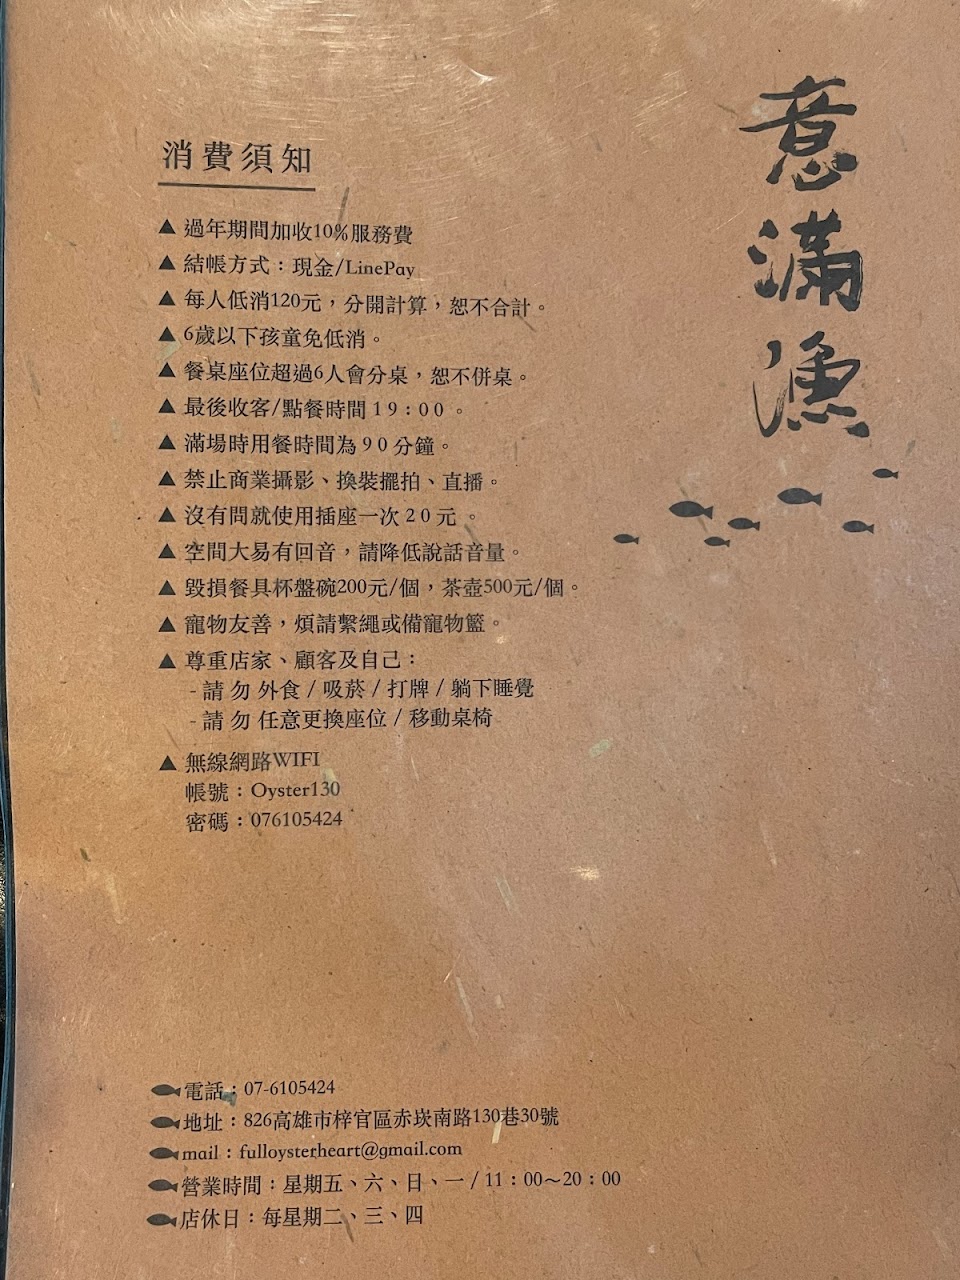 意滿漁
消費須知
▲ 過年期間加收10%服務費
▲ 結帳方式：現金/LinePay
▲ 每人低消120元，分開計算，恕不合計。
▲ 6歲以下孩童免低消。
▲ 餐桌座位超過6人會分桌，恕不併桌。
▲ 最後收客/點餐時間 19：00 。
▲ 滿場時用餐時間為 90 分鐘。
▲ 禁止商業攝影、換裝擺拍、直播。
▲ 沒有問就使用插座一次 20 元 。
▲ 空間大易有回音，請降低說話音量。
▲ 毀損餐具杯盤碗200元/個，茶壺500元/個。
▲ 寵物友善，煩請繫繩或備寵物籃。
▲ 尊重店家、顧客及自己：
- 請 勿 外食 / 吸菸 / 打牌 / 躺下睡覺
- 請 勿 任意更換座位 / 移動桌椅
▲ 無線網路WIFI
帳號：Oyster130
密碼：076105424
電話：07-6105424
地址：826高雄市梓官區赤崁南路130巷30號
mail：fulloysterheart@gmail.com
營業時間：星期五、六、日、一 / 11：00～20：00
店休日：每星期二、三、四